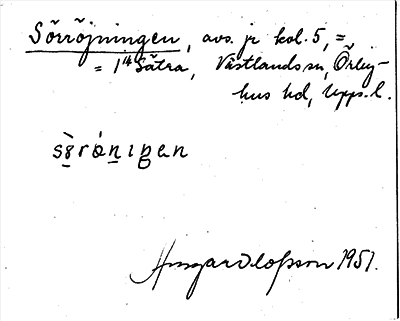 Sörröjningen, avs. jr kol. 5, =
= 1⁴ Sätra, Västlands sn, Örby-
hus hd, Upps. l.
sörøningen
Ingvar Olofsson 1951.